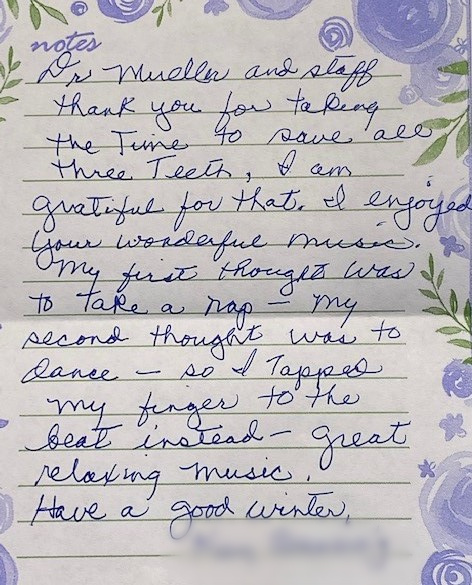 notes
Dr Mueller and staff
thank you for taking
the Time to save all
three Teeth, I am
gratiful for that. I enjoyed
your wonderful music.
My first thought was
to Take a nap – my
second thought was to
dance – so I Tapped
my finger to the
beat instead – great
relaxing music.
Have a good winter,